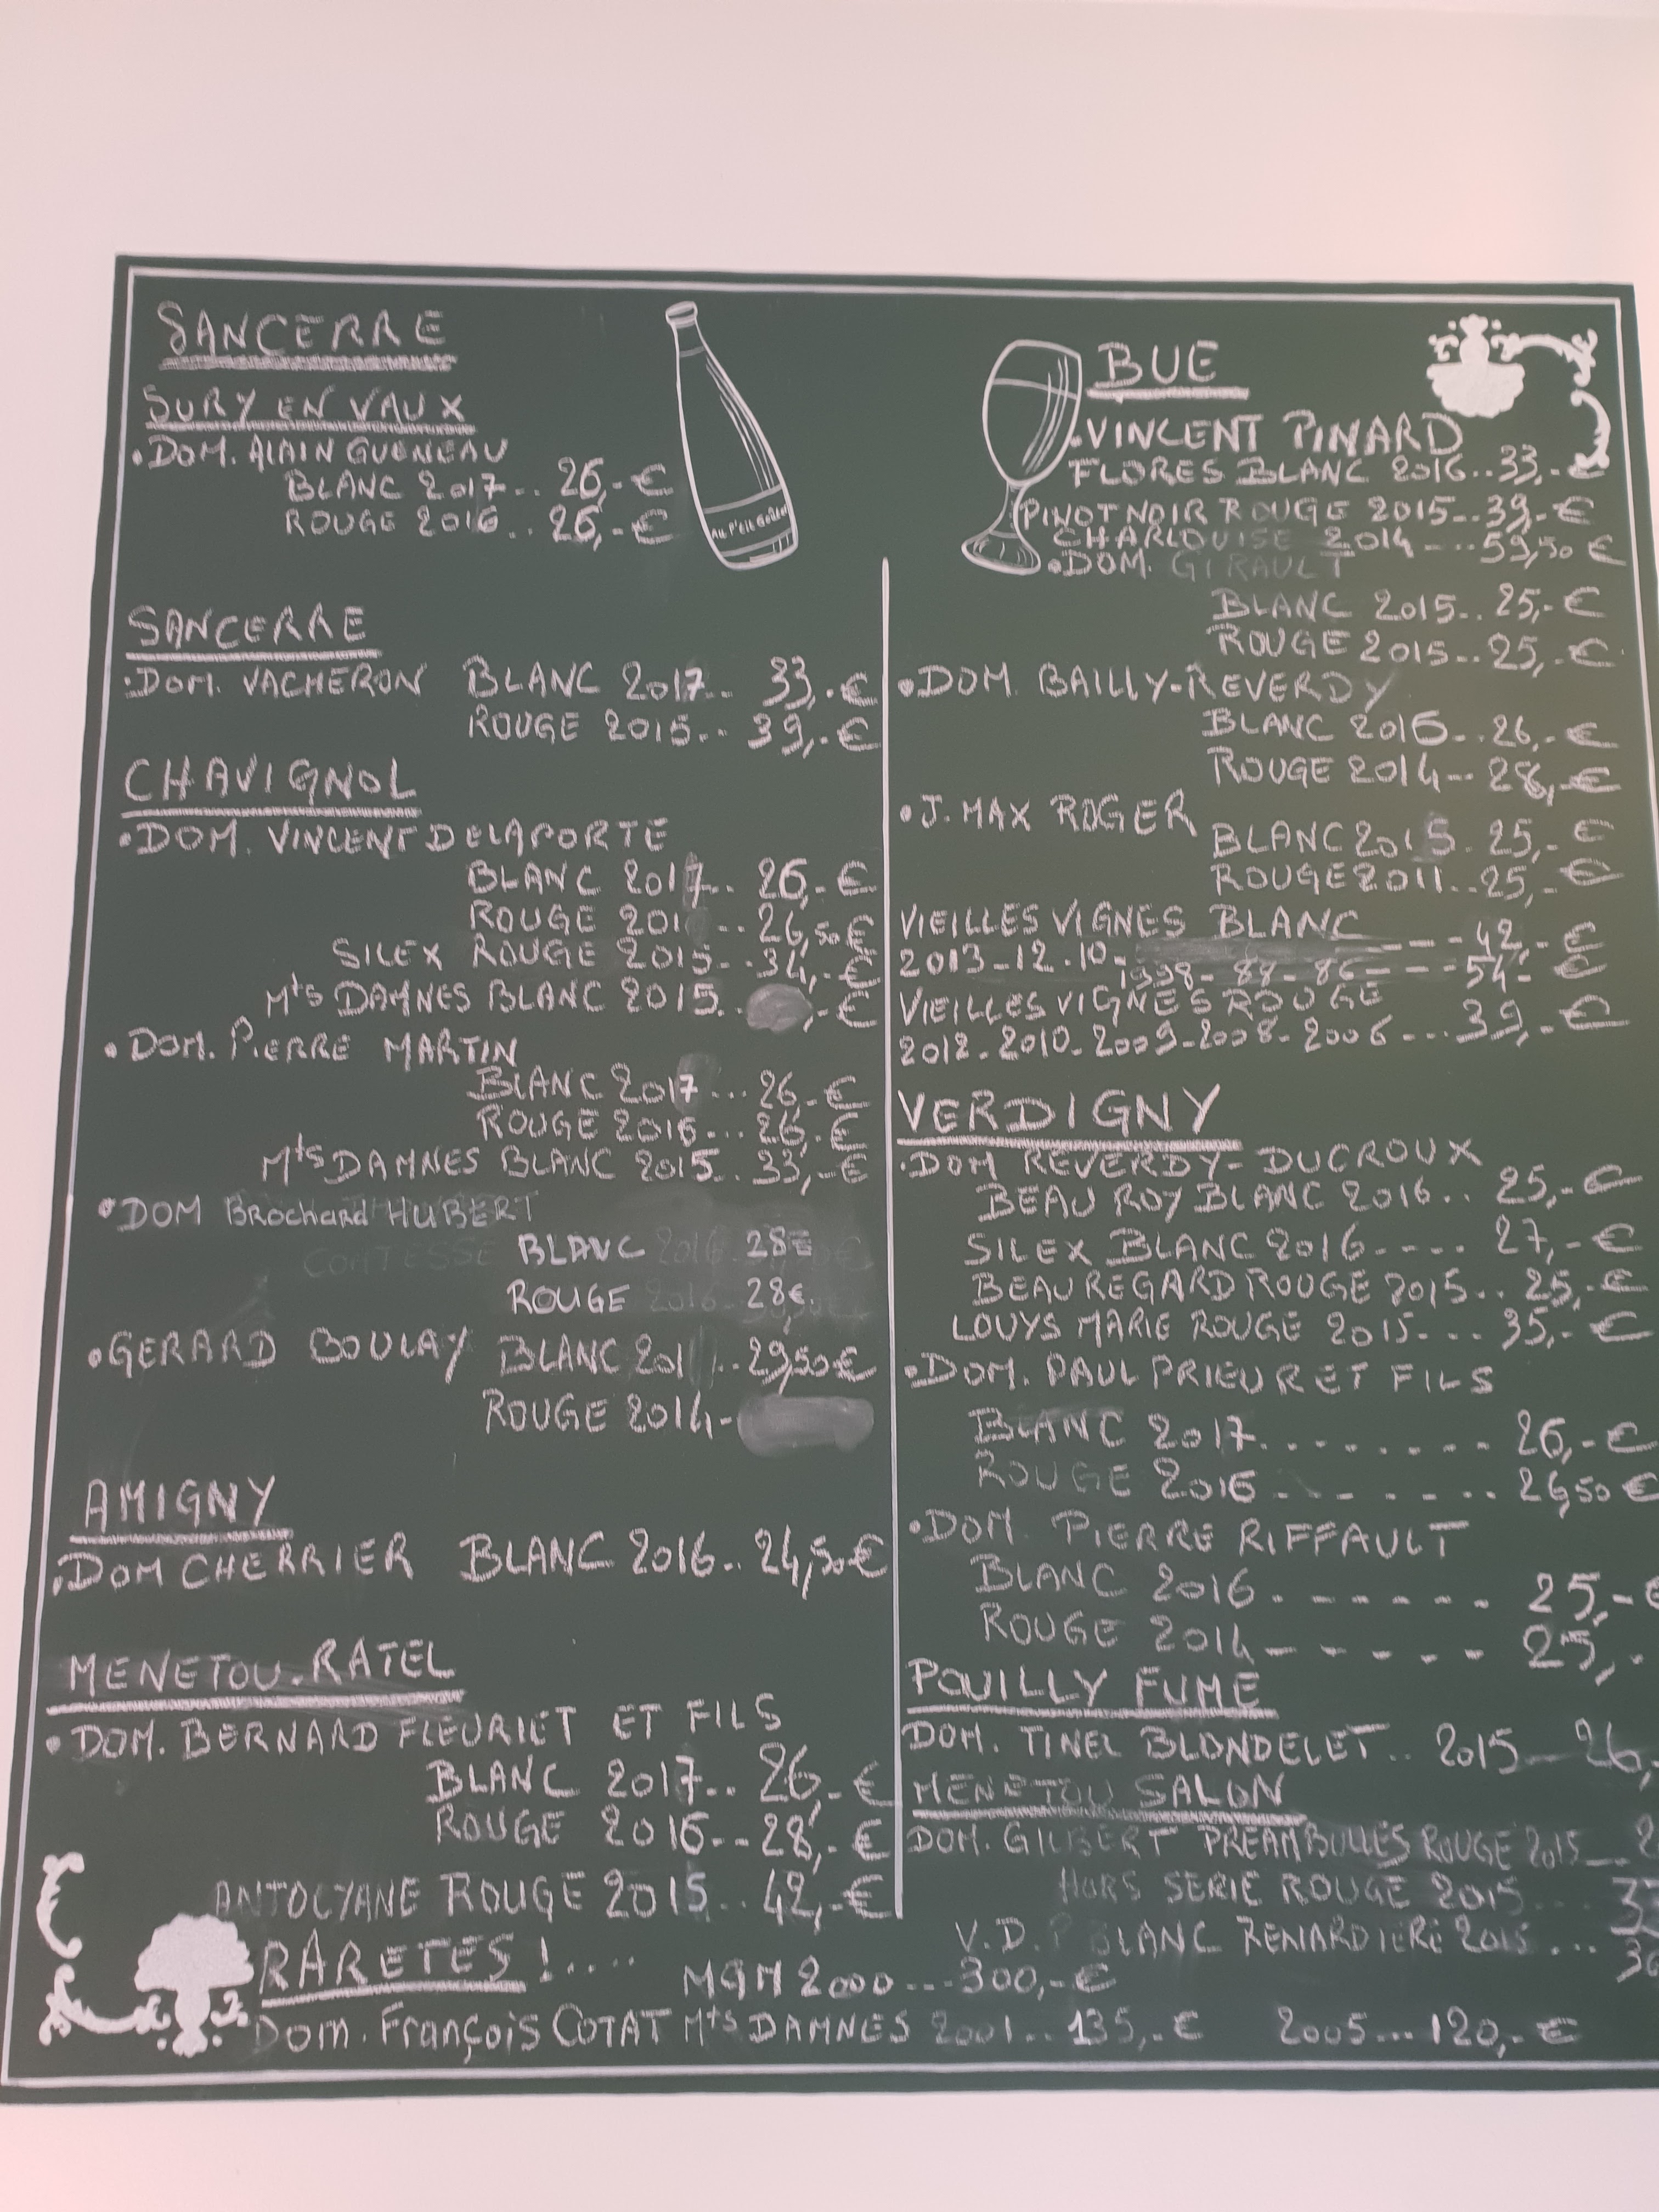 SANCERRE
SURY EN VAUX
•DOM. ALAIN GUENEAU
BLANC 2017... 26,-€
ROUGE 2016... 26,-€
AU P'TIT GOÛTER
SANCERRE
•DOM. VACHERON BLANC 2017... 33,-€
ROUGE 2015... 39,-€
CHAVIGNOL
•DOM. VINCENT DELAPORTE
BLANC 2017... 26,-€
ROUGE 201 ... 26,50€
SILEX ROUGE 2015... 34,-€
Mts DAMNES BLANC 2015.. ,-€
•DOM. PIERRE MARTIN
BLANC 2017... 26,-€
ROUGE 2016... 26,-€
Mts DAMNES BLANC 2015.. 33,-€
•DOM Brochard HUBERT
COMTESSE BLANC 2016 28€
ROUGE 2016 28€
•GERARD BOULAY BLANC 201 .. 29,50€
ROUGE 2014-
AMIGNY
•DOM CHERRIER BLANC 2016.. 24,50€
MENETOU-RATEL
•DOM. BERNARD FLEURIET ET FILS
BLANC 2017... 26,-€
ROUGE 2016... 28,-€
ANTOCYANE ROUGE 2015.. 42,-€
BUE
•VINCENT PINARD
FLORES BLANC 2016..33,-€
PINOT NOIR ROUGE 2015..39,-€
CHARLOUISE 2014 ---- 59,50 €
•DOM. GIRAULT
BLANC 2015.. 25,-€
ROUGE 2015.. 25,-€
•DOM. BAILLY-REVERDY
BLANC 2016.. 26,-€
ROUGE 2014-- 28,-€
•J. MAX ROGER
BLANC 2015. 25,-€
ROUGE 2011.. 25,-€
VIEILLES VIGNES BLANC
2013-12.10- ---- 42,-€
1998- 88-86- --- 54-€
VIEILLES VIGNES ROUGE
2012-2010-2009-2008-2006 ... 39,-€
VERDIGNY
•DOM REVERDY-DUCROUX
BEAU ROY BLANC 2016.. 25,-€
SILEX BLANC 2016---- 27,-€
BEAUREGARD ROUGE 2015.. 25,-€
LOUYS MARIE ROUGE 2015--.. 35,-€
•DOM. PAUL PRIEUR ET FILS
BLANC 2017........ 26,-€
ROUGE 2016........ 26,50€
•DOM. PIERRE RIFFAULT
BLANC 2016------- 25,-€
ROUGE 2014------ 25,-
POUILLY FUME
DOM. TINEL BLONDELET.. 2015 — 26,-
MENETOU SALON
DOM. GILBERT PREAMBULLES ROUGE 2015__ 2
HORS SERIE ROUGE 2015... 3
V.D.P BLANC RENARDIERE 2015 ... 3
RARETES !....
MGM 2000...300,-€
DOM. François COTAT Mts DAMNES 2001.. 135,-€ 2005... 120,-€